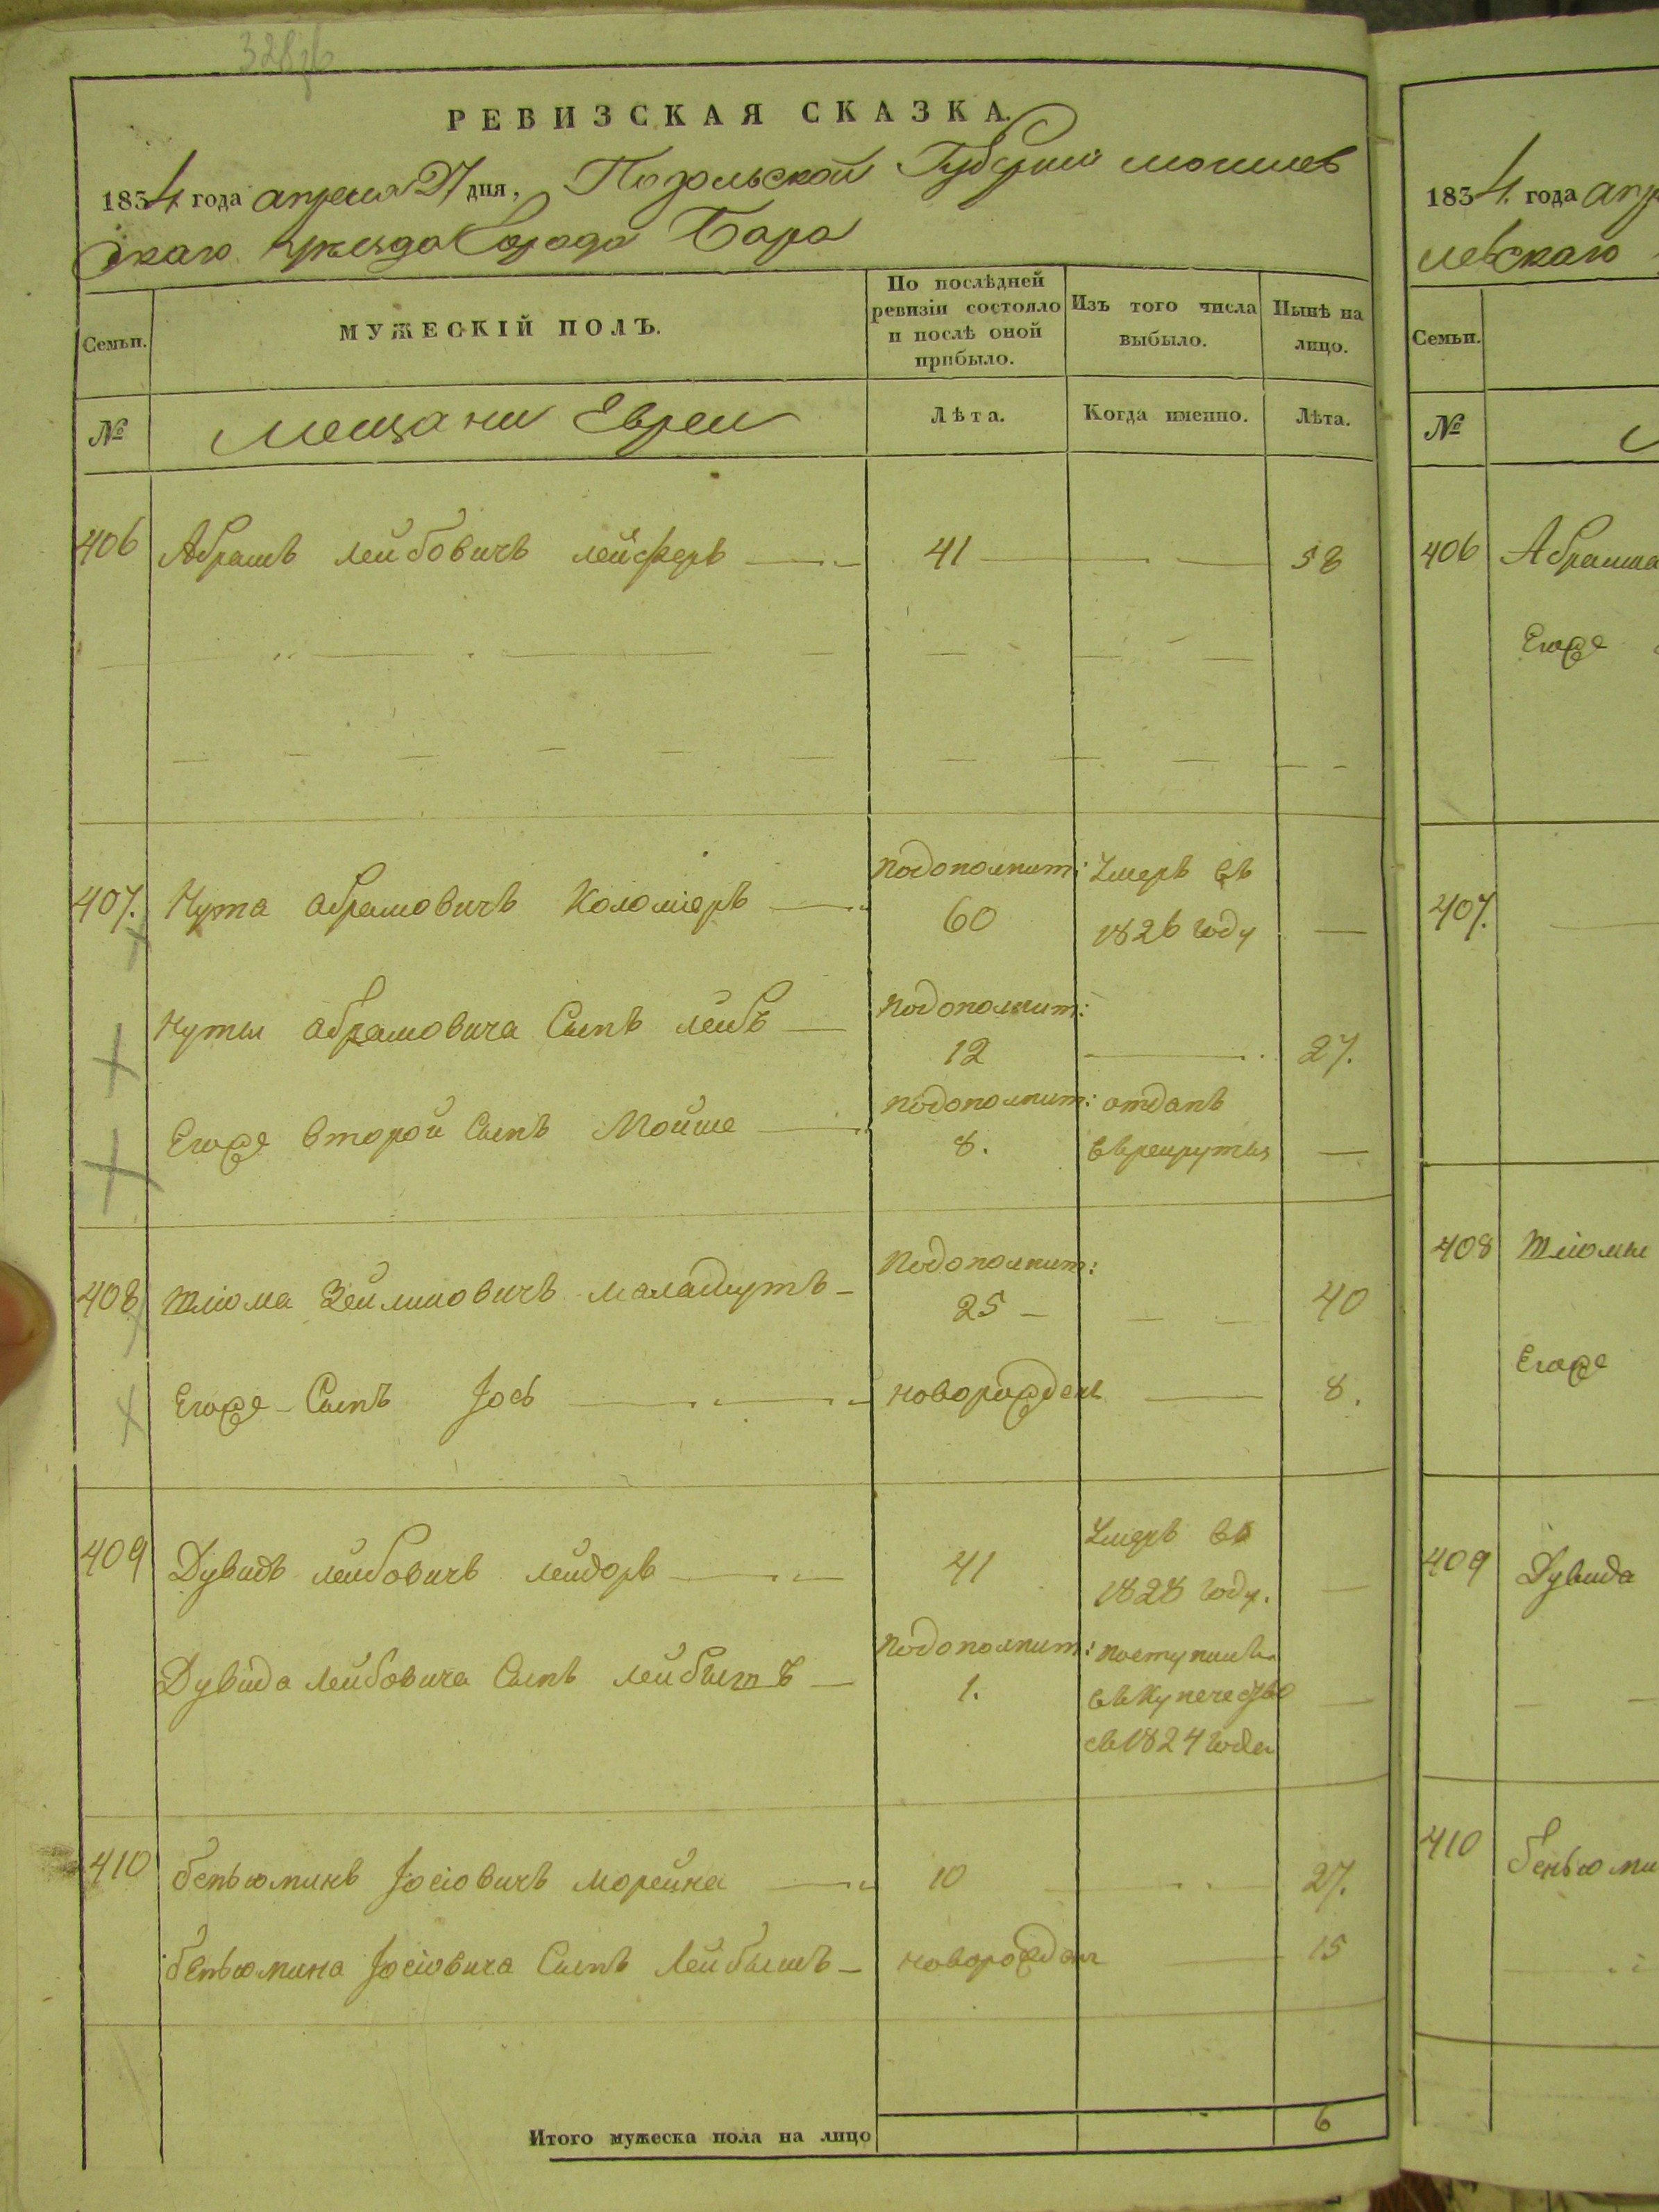 328об
РЕВИЗСКАЯ СКАЗКА.
1834 года апреля 27 дня, Подольской Губернии могилев
скаго уезда Города Бара
Семьи.
МУЖЕСКІЙ ПОЛЪ.
По послѣдней ревизіи состояло и послѣ оной прибыло.
Изъ того числа выбыло.
Нынѣ на лицо.
№
Мещани Евреи
Лѣта.
Когда именно.
Лѣта.
406 Абрамъ лейбовичъ лейферъ 41 58
407. Нута абрамовичъ Коломіеръ
подополнит: 60
Умеръ въ
1826 году
Нуты абрамовича Сынъ лейбъ
подополнит: 12
27.
Егоже второй Сынъ Мойше
подополнит: 8.
отданъ
в рекруты
408 Шліома Зейликовичъ малашутъ
Подополнит: 25
40
Егоже Сынъ Іось новорожденъ 8.
409 Дувидъ лейбовичъ лейдоръ 41
Умеръ въ
1828 году.
Дувида лейбовича Сынъ лейбишъ
подополнит: 1.
поступилъ
въ купечество
съ 1824 года
410 беньюминъ Іосіовичъ морейна 10 27.
беньюмина Іосіовича Сынъ Лейбышъ новорожден 15
Итого мужеска пола на лицо 6
1834 года апр
левскаго
Семьи.
№
406 Абрама
Егоже
407.
408 Шліомы
Егоже
409 Дувида
410 беньюми